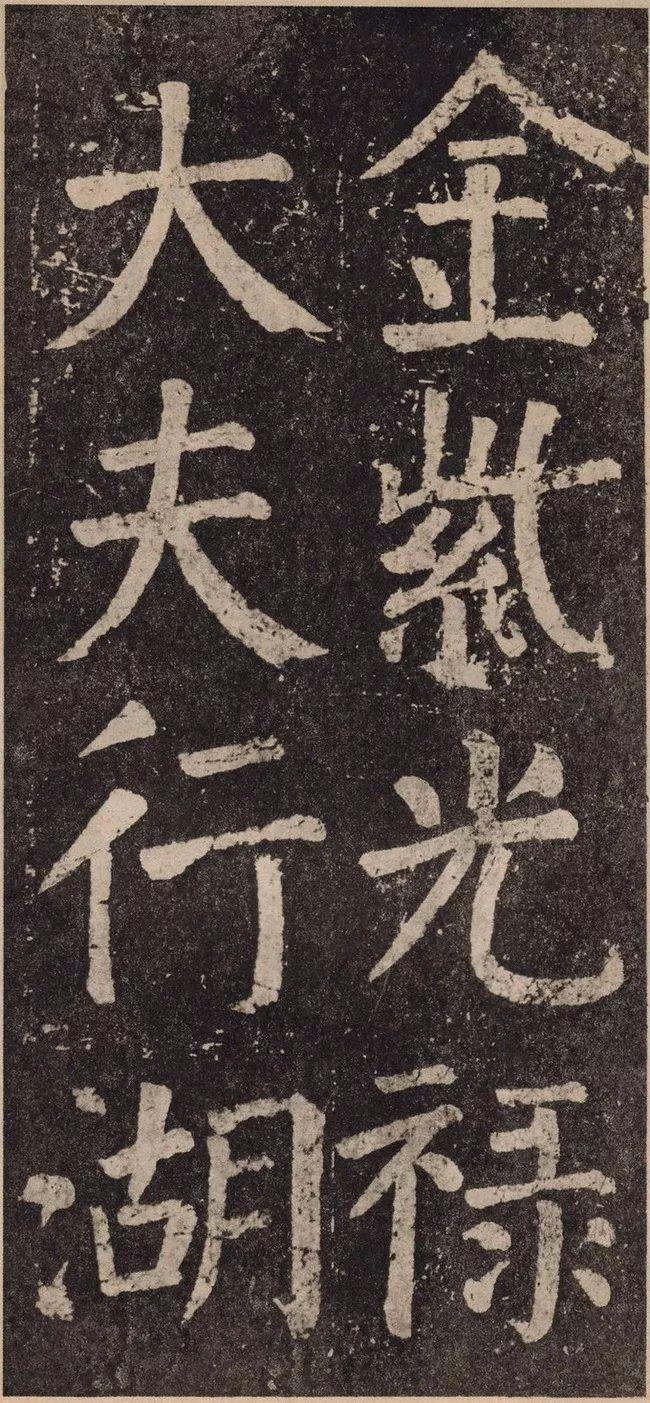 金紫光禄
大夫行湖